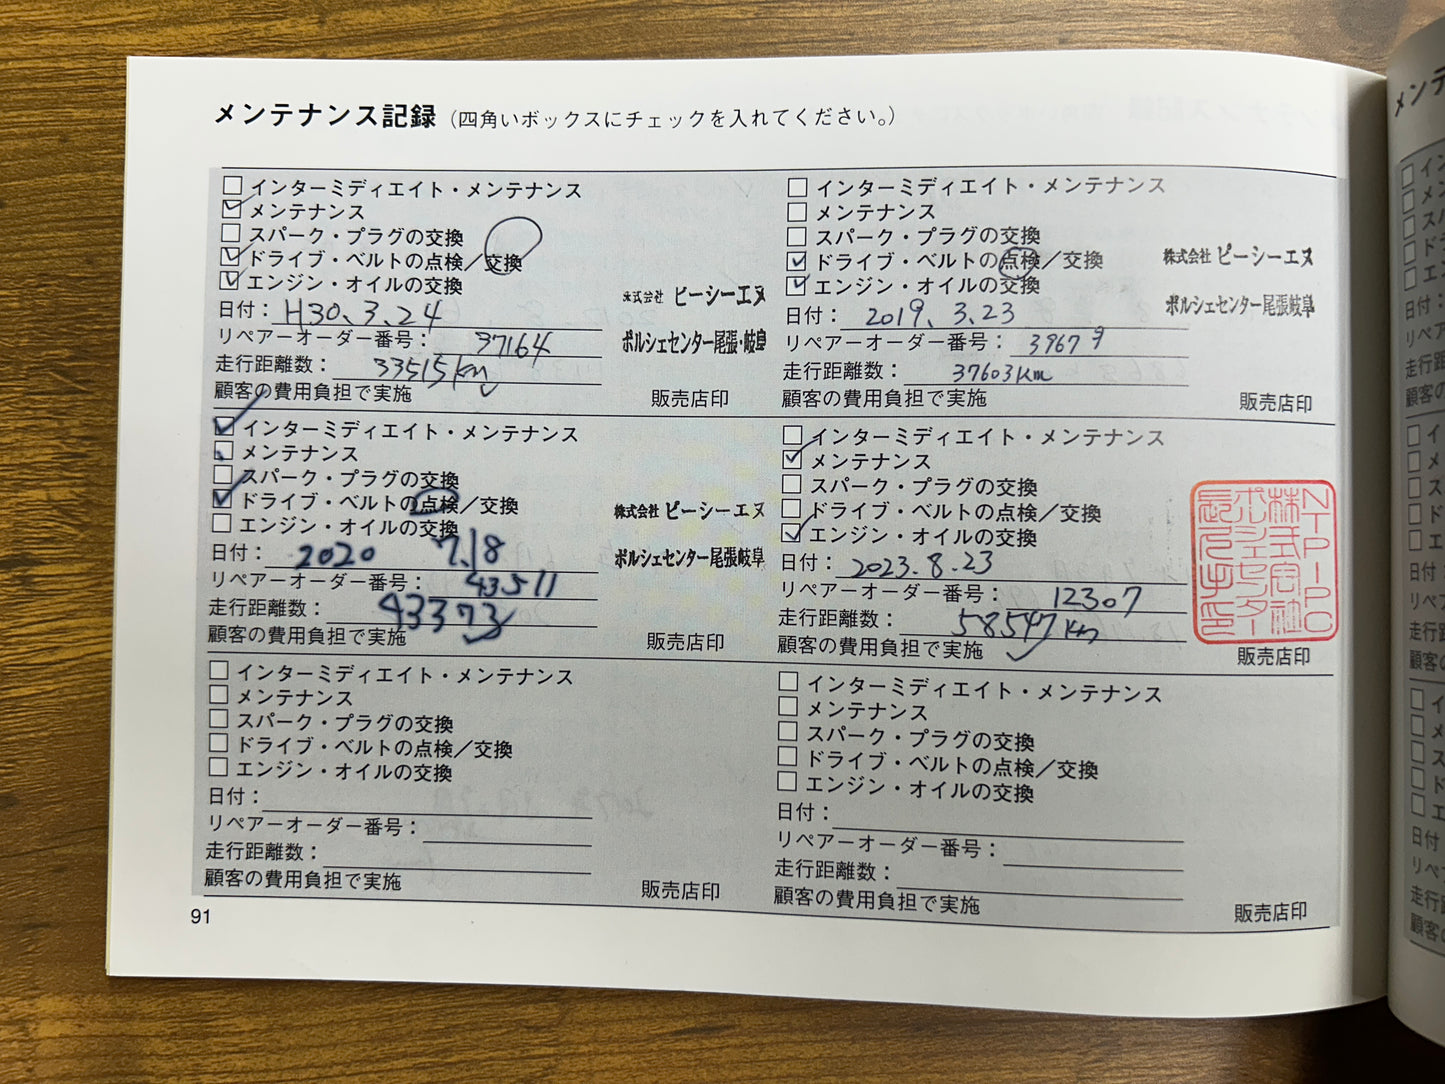 メンテナンス記録（四角いボックスにチェックを入れてください。）
インターミディエイト・メンテナンス
メンテナンス
スパーク・プラグの交換
ドライブ・ベルトの点検／交換
エンジン・オイルの交換
日付： H30.3.24
リペアーオーダー番号： 37164
走行距離数： 33515km
顧客の費用負担で実施
株式会社 ピーシーエヌ
ポルシェセンター尾張・岐阜
販売店印
インターミディエイト・メンテナンス
メンテナンス
スパーク・プラグの交換
ドライブ・ベルトの点検／交換
エンジン・オイルの交換
日付： 2019.3.23
リペアーオーダー番号： 39679
走行距離数： 37603Km
顧客の費用負担で実施
株式会社 ピーシーエヌ
ポルシェセンター尾張岐阜
販売店印
インターミディエイト・メンテナンス
メンテナンス
スパーク・プラグの交換
ドライブ・ベルトの点検／交換
エンジン・オイルの交換
日付： 2020 7.18
リペアーオーダー番号： 43511
走行距離数： 43373
顧客の費用負担で実施
株式会社 ピーシーエヌ
ポルシェセンター尾張岐阜
販売店印
インターミディエイト・メンテナンス
メンテナンス
スパーク・プラグの交換
ドライブ・ベルトの点検／交換
エンジン・オイルの交換
日付： 2023.8.23
リペアーオーダー番号： 12307
走行距離数： 58547Km
顧客の費用負担で実施
NTP-IPC
株式会社
ポルシェセンター
販売店印
インターミディエイト・メンテナンス
メンテナンス
スパーク・プラグの交換
ドライブ・ベルトの点検／交換
エンジン・オイルの交換
日付：
リペアーオーダー番号：
走行距離数：
顧客の費用負担で実施
販売店印
インターミディエイト・メンテナンス
メンテナンス
スパーク・プラグの交換
ドライブ・ベルトの点検／交換
エンジン・オイルの交換
日付：
リペアーオーダー番号：
走行距離数：
顧客の費用負担で実施
販売店印
91